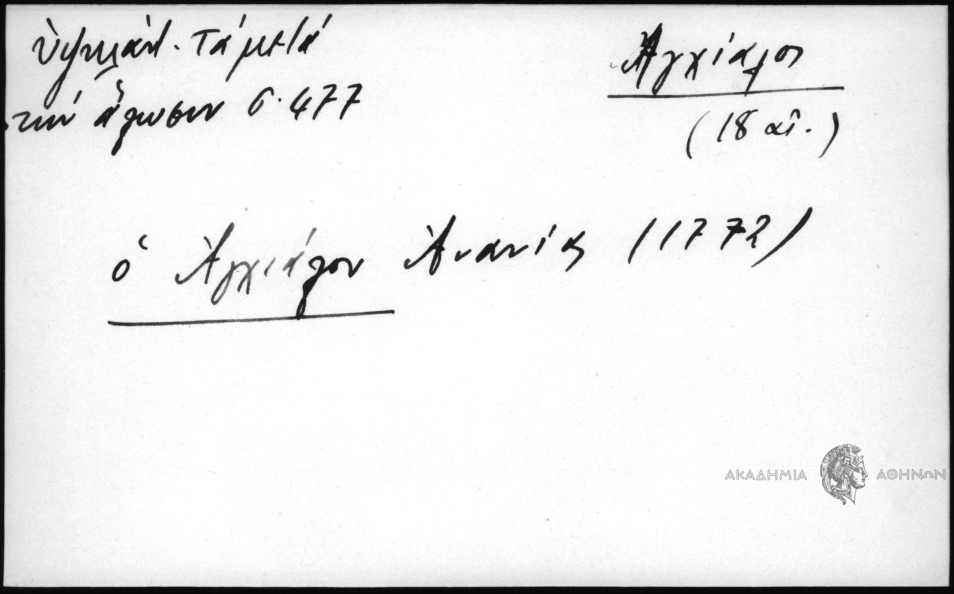 Ὑψηλάντ. Τά μετά
τήν ἅλωσιν σ. 477
Ἀγχίαλος
(18 αἰ.)
ὁ Ἀγχιάλου Ἀνανίας (1772)
ΑΚΑΔΗΜΙΑ ΑΘΗΝΩΝ